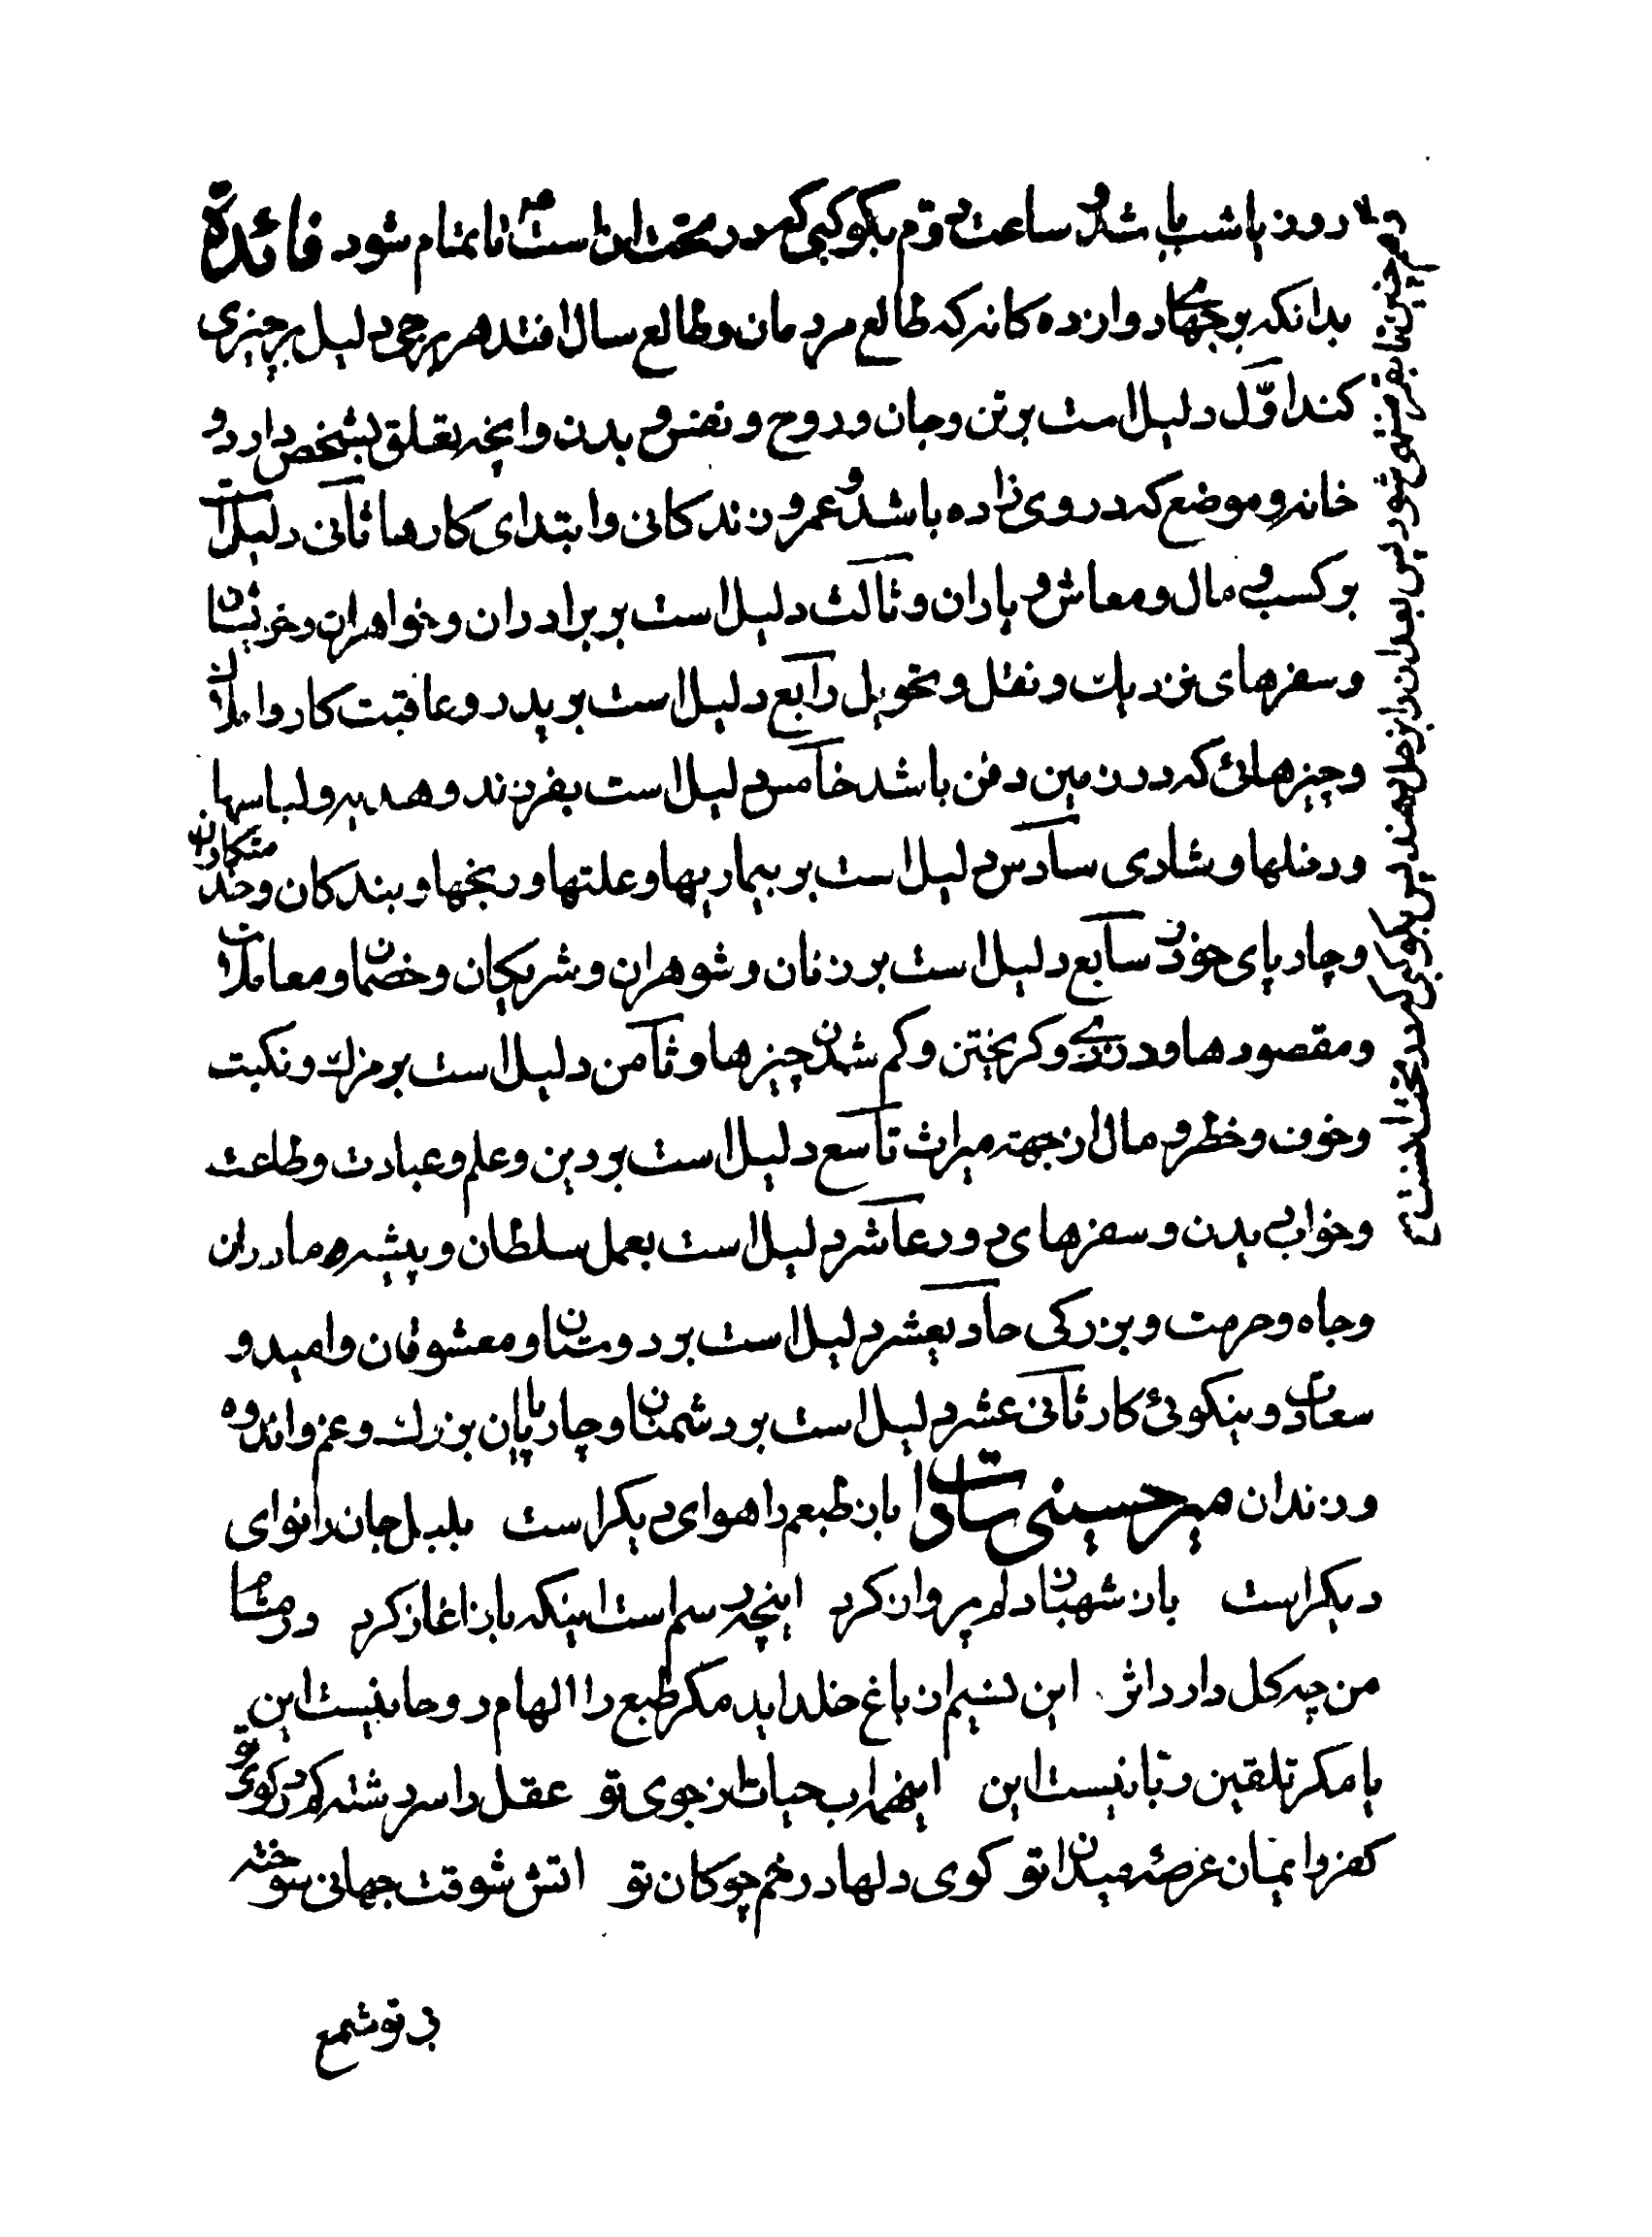 روز یا شب باشد و ساعت دوم بکوکبی که در تحت انست تا تمام شود فائدة
بدانکه برجهای دوازده کانه که طالع مردمان و طالع سال افتد هر برجی دلیل بر چیزی
کند اوّل دلیل است بر تن و جان و روح و نفس و بدن و انچه تعلق بشخص دارد و
خانه و موضع که در وی زاده باشد و عمر و زندکانی و ابتدای کارها ثانی دلیل است
بر کسب و مال و معاش و یاران و ثالث دلیل است بر برادران و خواهران و خویشان
و سفرهای نزدیک و نقل و تحویل رابع دلیل است بر پدر و عاقبت کار و املاک
و چیزهائی که در زمین دفن باشد خامس دلیل است بفرزند و هدیه و لباسها
و رسلها و شادی سادس دلیل است بر بیماریها و علتها و رنجها و بندکان و خدمتکاران
و چارپای خورد سابع دلیل است بر زنان و شوهران و شریکان و خصمان و معاملات
و مقصودها و دزدی و کریختن و کم شدن چیزها و ثامن دلیل است بر مرک و نکبت
و خوف و خطر و مال از جهة میراث تاسع دلیل است بر دین و علم و عبادت و طاعت
و خواب دیدن و سفرهای دور عاشر دلیل است بعمل سلطان و پیشه و مادران
و جاه و حرمت و بزرکی حادیعشر دلیل است بر دوستان و معشوقان و امید و
سعادت و نیکوئی کار ثانی عشر دلیل است بر دشمنان و چارپایان بزرک و غم و اندوه
و زندان میر حسینی سادات باز طبعم را هوای دیکر است بلبل جان را نوای
دیکر است باز شهباز دلم پرواز کرد اینچه رسم است اینکه باز اغاز کرد در مشام
من چه کل دارد اثر این نسیم از باغ خلد اید مکر طبع را الهام روحانیست این
یا مکر تلقین ربّانیست این اینهمه اب حیات از جوی تو عقل را سررشته کم در کوی تو
کفر و ایمان عرصهٔ میدان تو کوی دلها در خم چوکان تو اتش شوقت جهانی سوخته
بر تو شمع